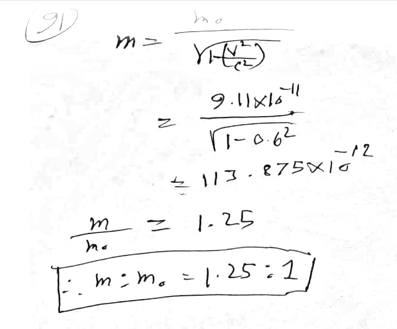 91
m = m₀ / √1-(v²/c²)
= 9.11×10⁻¹¹ / √1-0.6²
= 113.875×10⁻¹²
m/m₀ = 1.25
∴ m : m₀ = 1.25 : 1